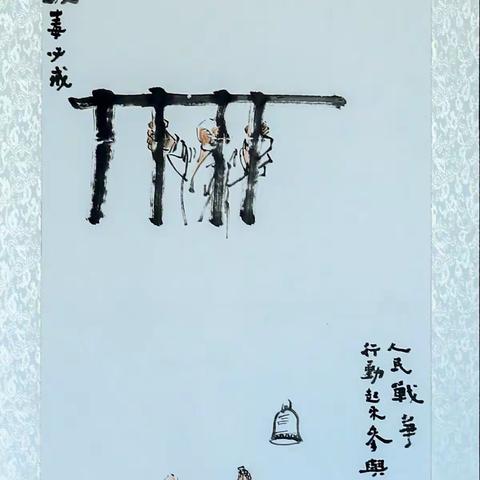 毒必戒
人民戰爭
行動起来参與